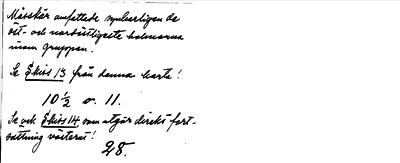 Måsskär omfattade synbarligen de
öst- och nordöstligaste holmarna
inom gruppen.
Se Skiss 13 från denna karta!
10 ½ o. 11.
Se ock Skiss 14, som utgör direkt fort-
sättning västerut!
28.